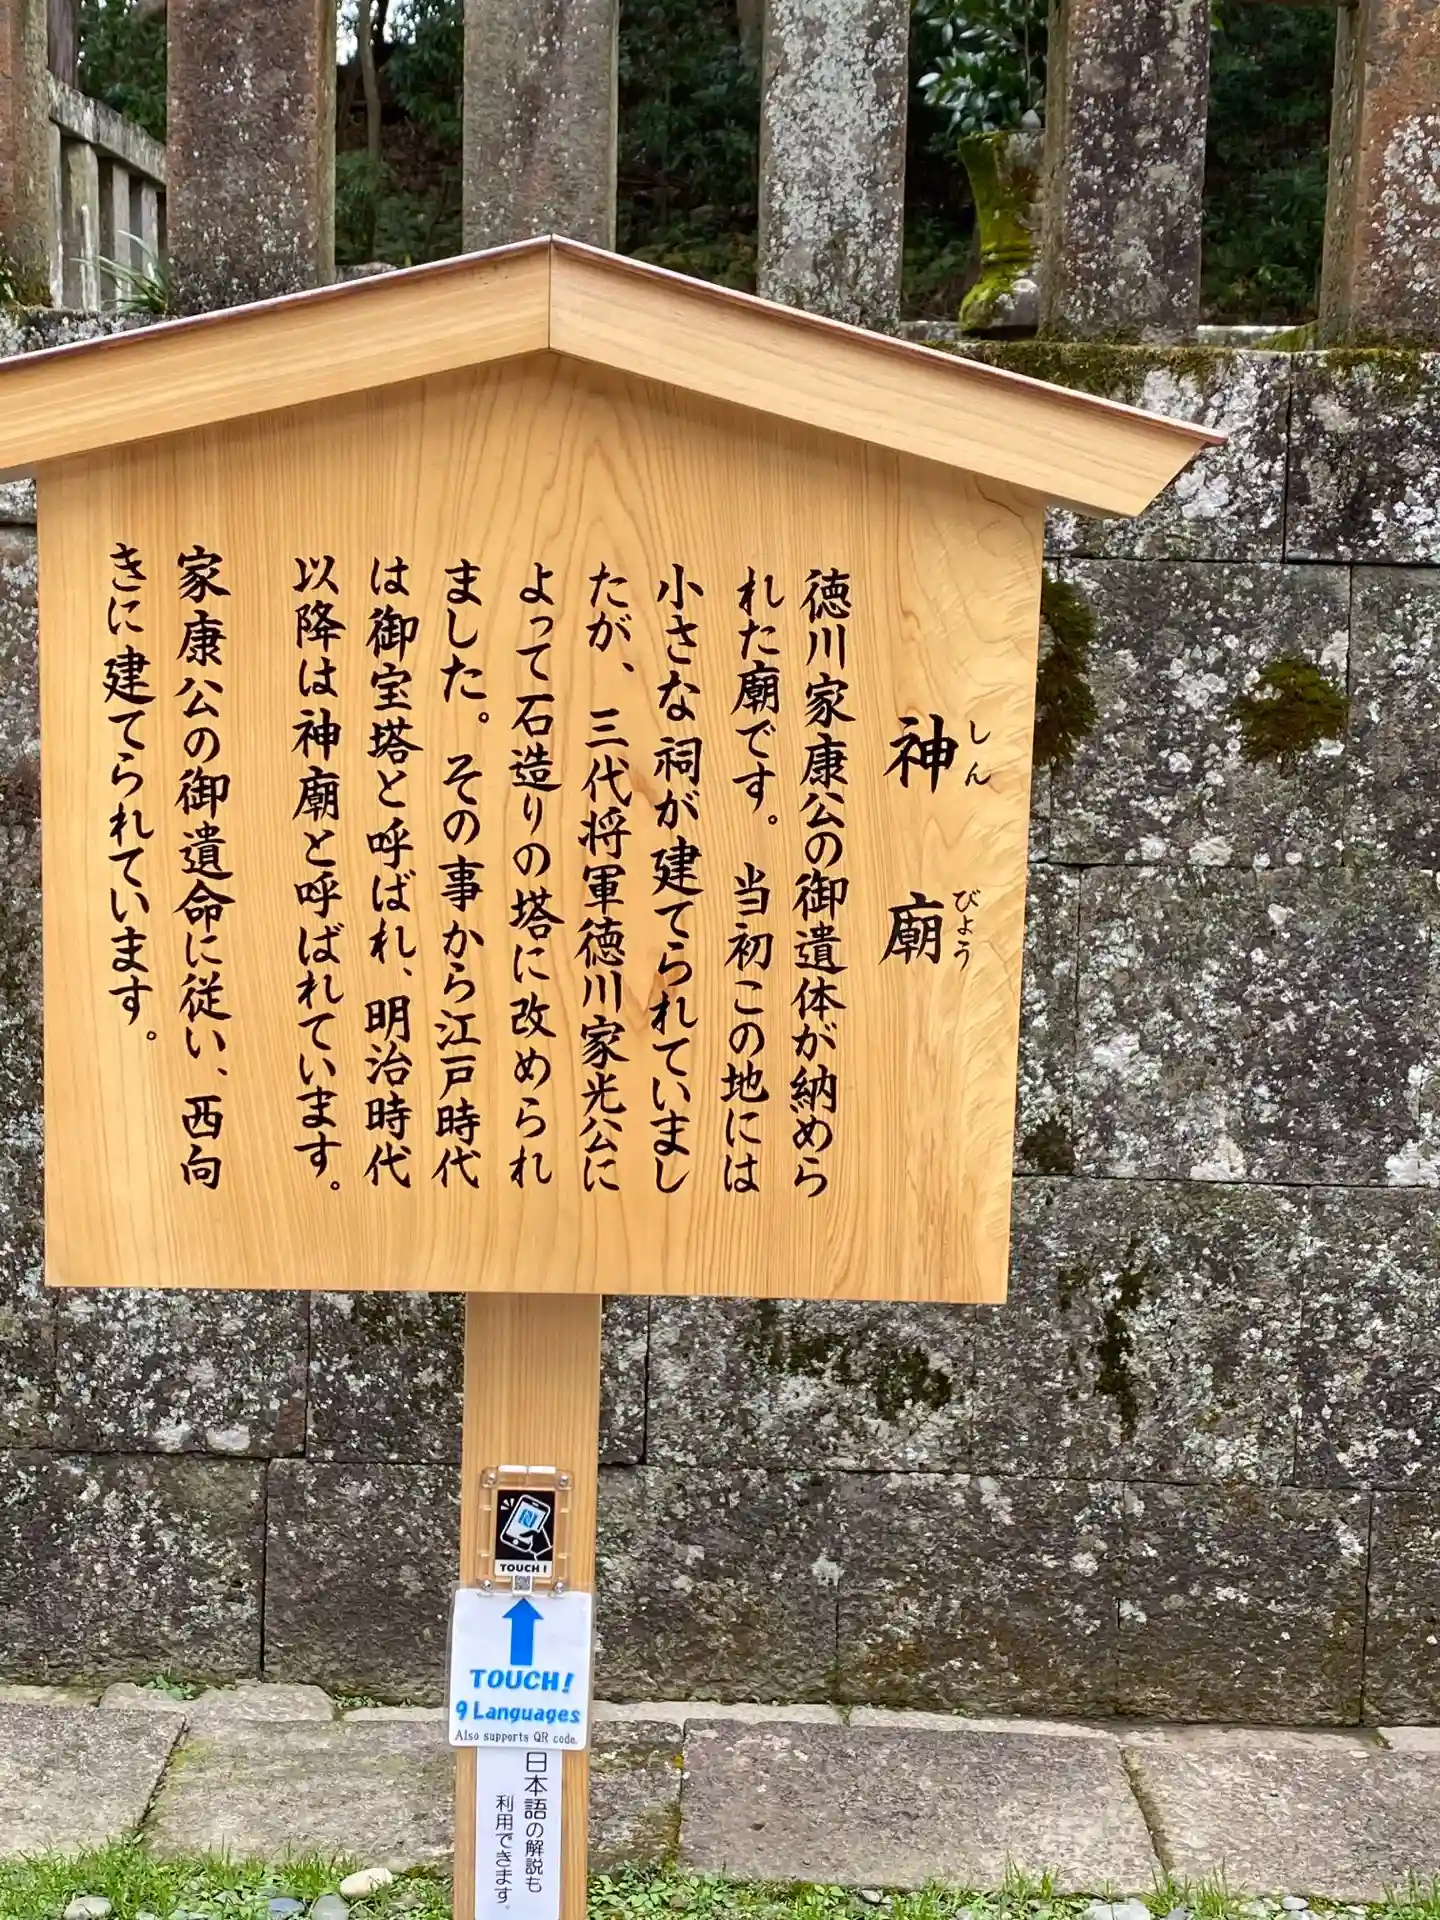 神廟
しんびょう
徳川家康公の御遺体が納めら
れた廟です。当初この地には
小さな祠が建てられていまし
たが、三代将軍徳川家光公に
よって石造りの塔に改められ
ました。その事から江戸時代
は御宝塔と呼ばれ、明治時代
以降は神廟と呼ばれています。
家康公の御遺命に従い、西向
きに建てられています。
TOUCH!
TOUCH!
9 Languages
Also supports QR code.
日本語の解説も
利用できます。